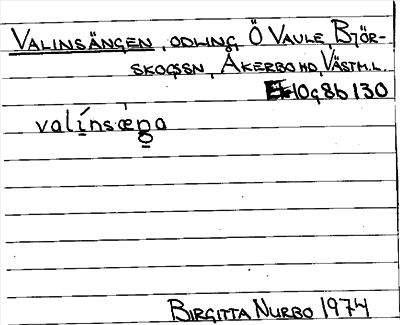 VALINSÄNGEN, ODLING, Ö VAULE, BJÖR-
SKOGSSN, ÅKERBO HD, VÄSTM.L.
10g8b 130
valínsæŋa
BIRGITTA NURBO 1974